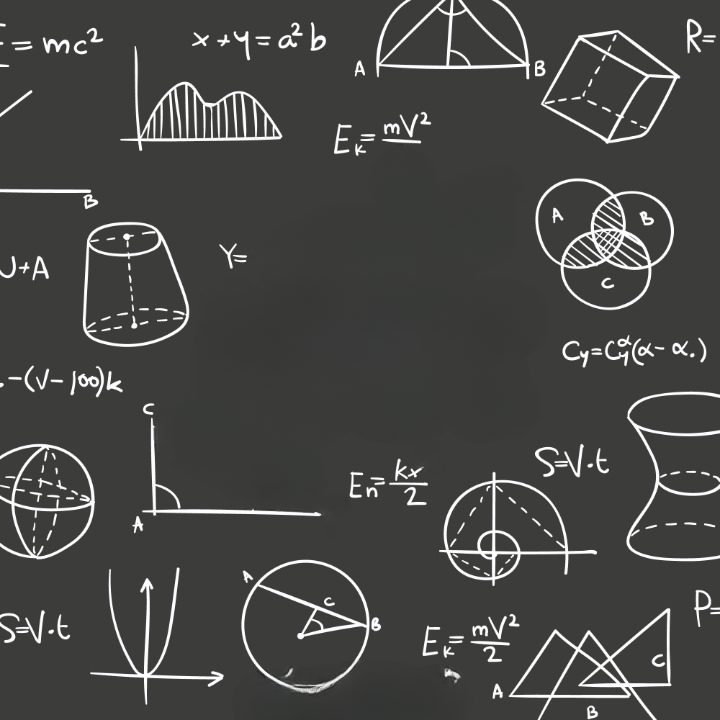 E=mc²
x+y=a²b
A
B
R=
E_K=mV²
B
A
B
C
U+A
Y=
C_y=C_y^α(α-α.)
-(V-100)k
C
A
E_n=kx/2
S=V·t
A
C
B
S=V·t
E_K=mV²/2
P=
A
B
C